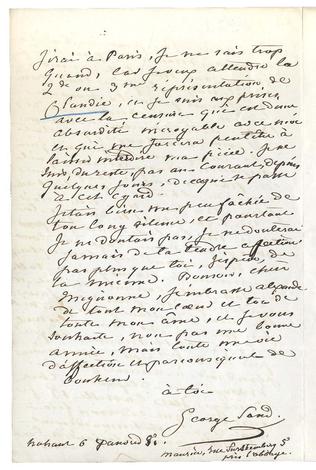 J'irai à Paris, je ne sais trop
quand, car je veux attendre la
2de ou 3me représentation de
Claudie, et je suis aux prises
avec la censure qui est d'une
absurdité incroyable avec moi
et qui me forcera peut-être à
laisser interdire ma pièce. Je ne
suis, du reste pas au courant, depuis
quelques jours, de ce qui se passe
à cet égard.
J'étais bien un peu fâchée de
ton long silence, et pourtant
je ne doutais pas, je ne douterai
jamais de ta tendre affection
pas plus que toi, j'espère, de
la mienne. Bonsoir, cher
Mignonne, j'embrasse
de tout mon cœur et toi de
toute mon âme, et je vous
souhaite, non pas une bonne
année, mais toute une vie
d'affection et par conséquent de
bonheur.
à toi
George Sand.
Nohant 6 janvier 51.
Maurice, rue Furstemberg 5
près l'abbaye.